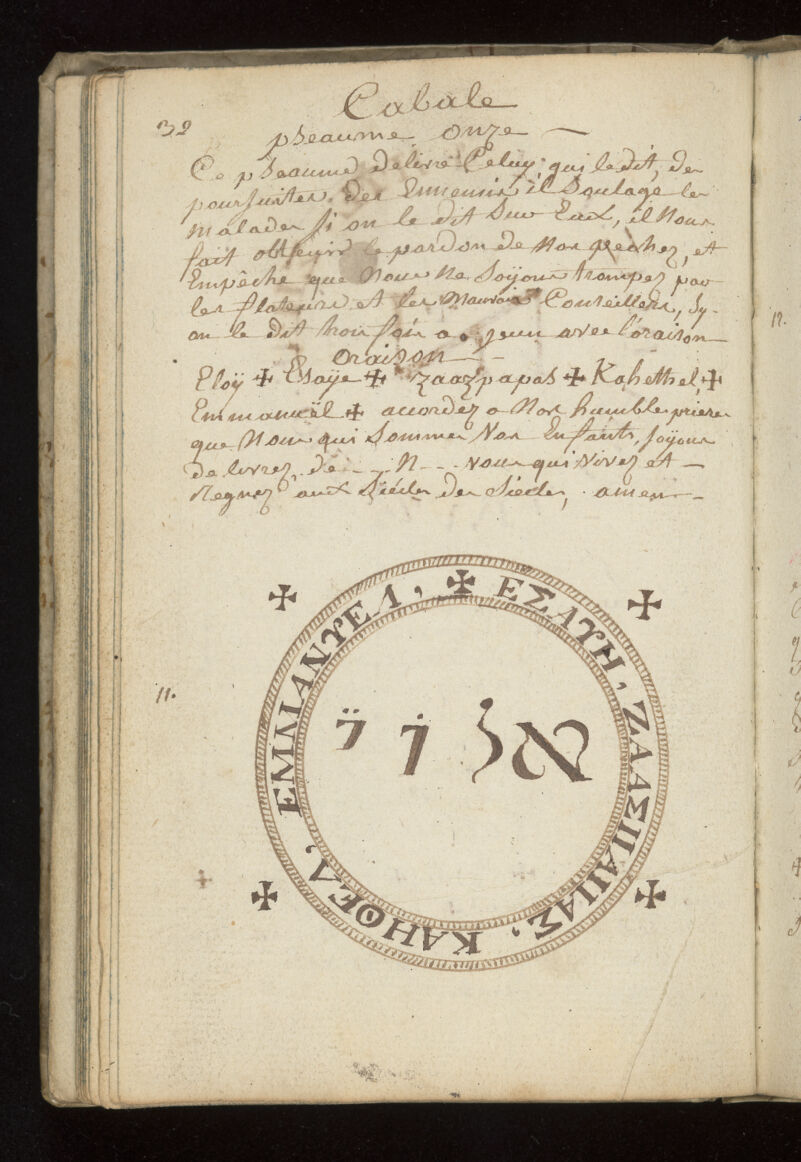 Cabale
32
pseaume onze
Ce pseaume delivre Celuy, qui le dit, des
poursuites des Ennemis il Soulage les
malades si on le dit Sur Eux, il nous
fait obtenir le pardon de nos pechez, et
Empêche que nous ne Soÿons trompez par
les flateurs et les Mauvais Conseillers, Sy
on le dit trois fois a jeun avec l'oraison
oraison
Eloÿ ✠ Esaÿe ✠ zaazpapas ✠ Kahethel, ✠
Emmanuël ✠ accordez a nos humbles prieres
que nous qui Sommes Vos Enfants, soÿons
delivrez, de - - N - - vous qui Vivez et
Regnez aux Siécles des Siecles, amen
✠ ΕΣΑΥΗ, ΖΑΑΣΠΑΠΑΣ, ΚΑΗΘΕΛ, ΕΜΜΑΝΥΕΛ,
אלוי
11.
12.